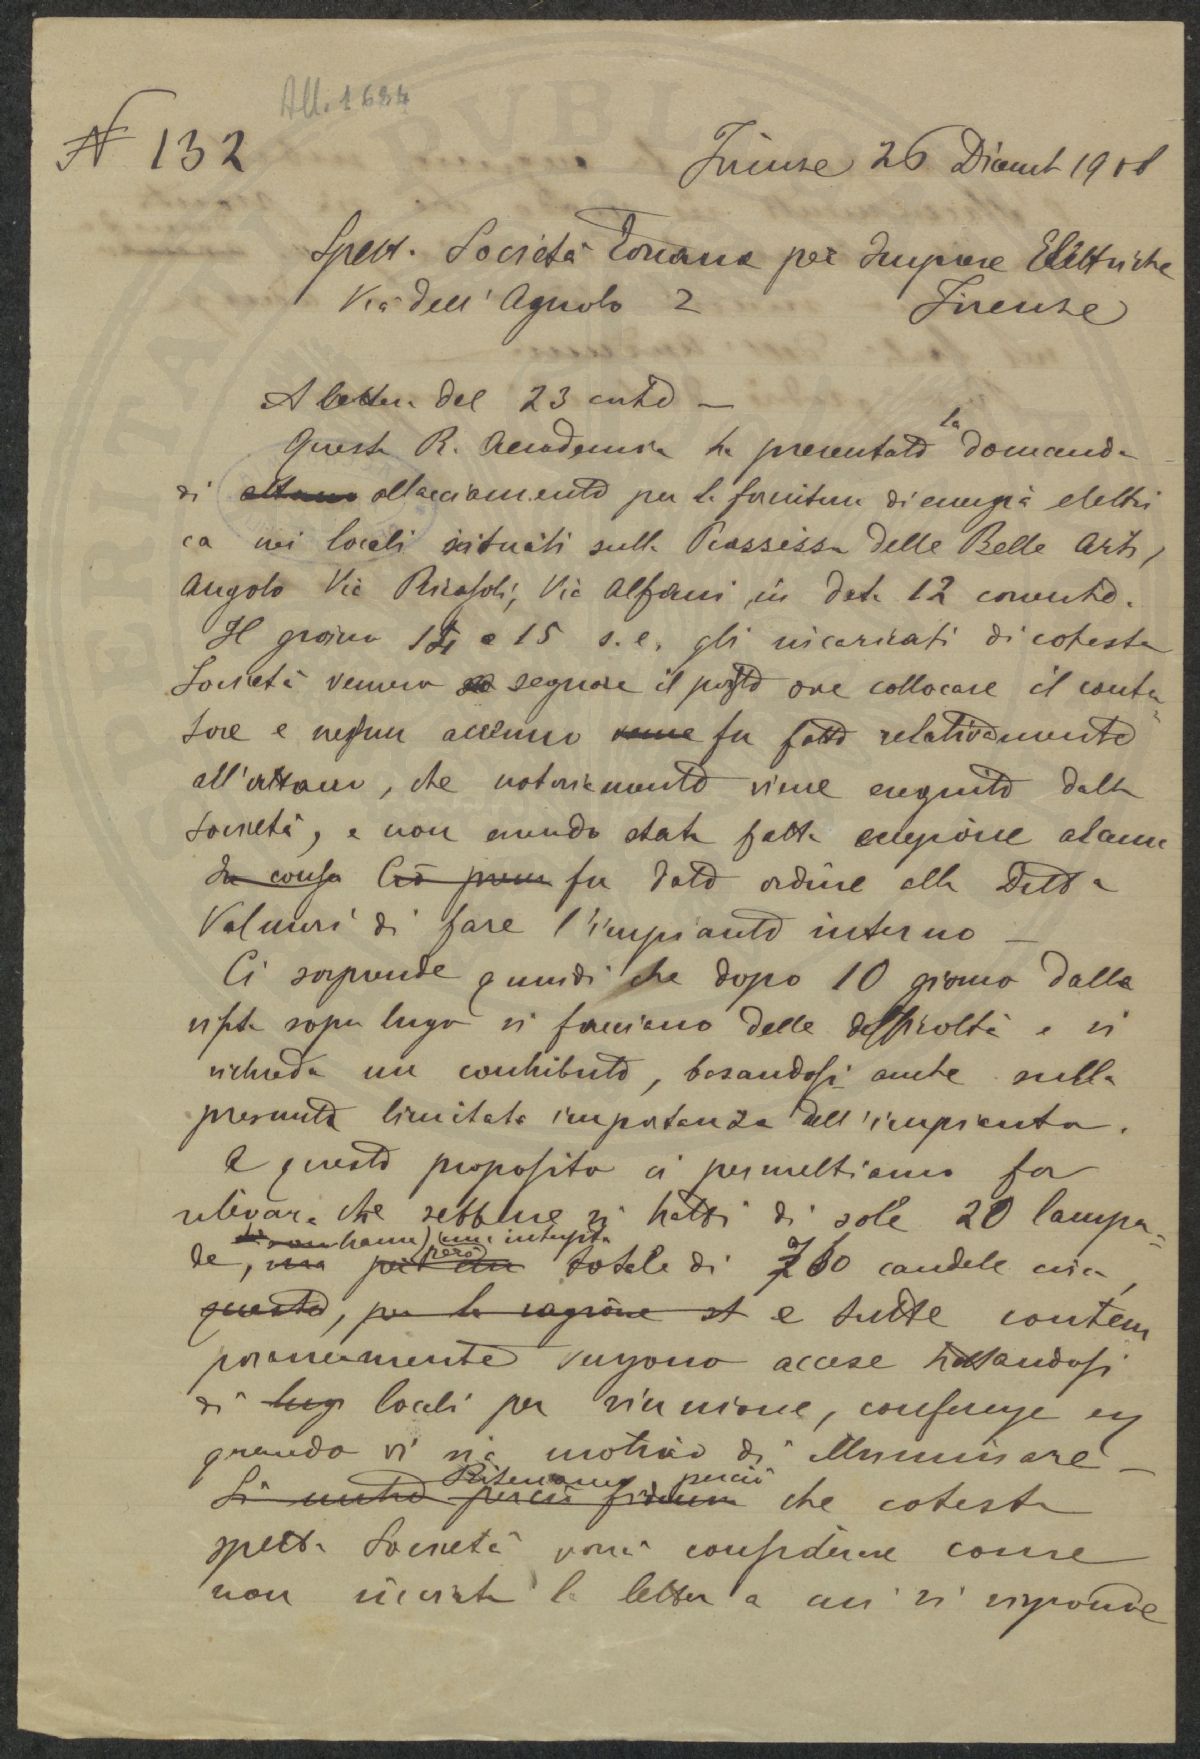 All. 1684
N 132
Firenze 26 Dicemb 1908
Spett. Società Toscana per Imprese Elettriche
Via dell' Agnolo 2 Firenze
A lettera del 23 corrte —
Questa R. Accademia ha presentato la domanda
di allacciamento per la fornitura di energia elettri
ca nei locali situati sulla Piazzetta delle Belle Arti,
Angolo Via Ricasoli, Via Alfani, in data 12 corrente.
Il giorno 14 o 15 s.e. gli incaricati di cotesta
Società vennero a segnare il posto ove collocare il conta
tore e nessun accenno fu fatto relativamente
all'attacco, che notoriamente viene eseguito dalla
Società, e non essendo stata fatta eccezione alcuna
fu dato ordine alla Ditta
Valmori di fare l'impianto interno —
Ci sorprende quindi che dopo 10 giorni dalla
visita sopra luogo si facciano delle difficoltà e si
richieda un contributo, basandosi anche sulla
presunta limitata importanza dell'impianto.
A questo proposito ci permettiamo far
rilevare che sebbene si tratti di sole 20 lampa=
de, hanno però una intensità totale di 760 candele circa,
e tutte contem
poraneamente vengono accese trattandosi
di locali per riunione, conferenze ogni
quando vi sia motivo di illuminare —
Riteniamo perciò che cotesta
Spett. Società vorrà considerare come
non inviata la lettera a cui si risponde